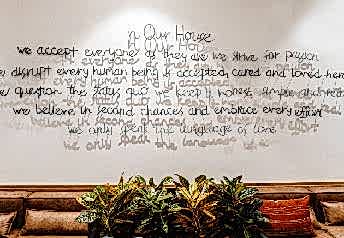 In Our House
we accept everyone as they are we strive for passion
disrupt every human being is accepted, cared and loved here
question the status quo we keep it honest, simple and
we believe in second chances and embrace every effort
we only speak the language of love